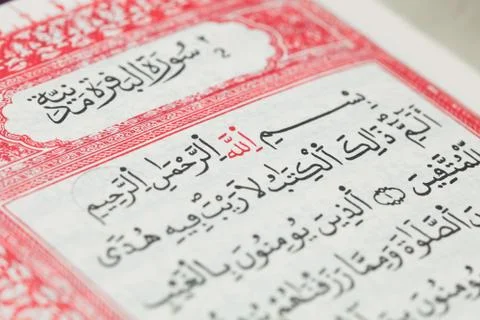 سُورَةُ الْبَقَرَةِ مَدَنِيَّةٌ ٢ 2
بِسْمِ اللّٰهِ الرَّحْمٰنِ الرَّحِيمِ
الٓمّٓ ذٰلِكَ الْكِتٰبُ لَا رَيْبَ فِيهِ هُدًى
لِّلْمُتَّقِينَ الَّذِينَ يُؤْمِنُونَ بِالْغَيْبِ
الصَّلٰوةَ وَمِمَّا رَزَقْنٰهُمْ